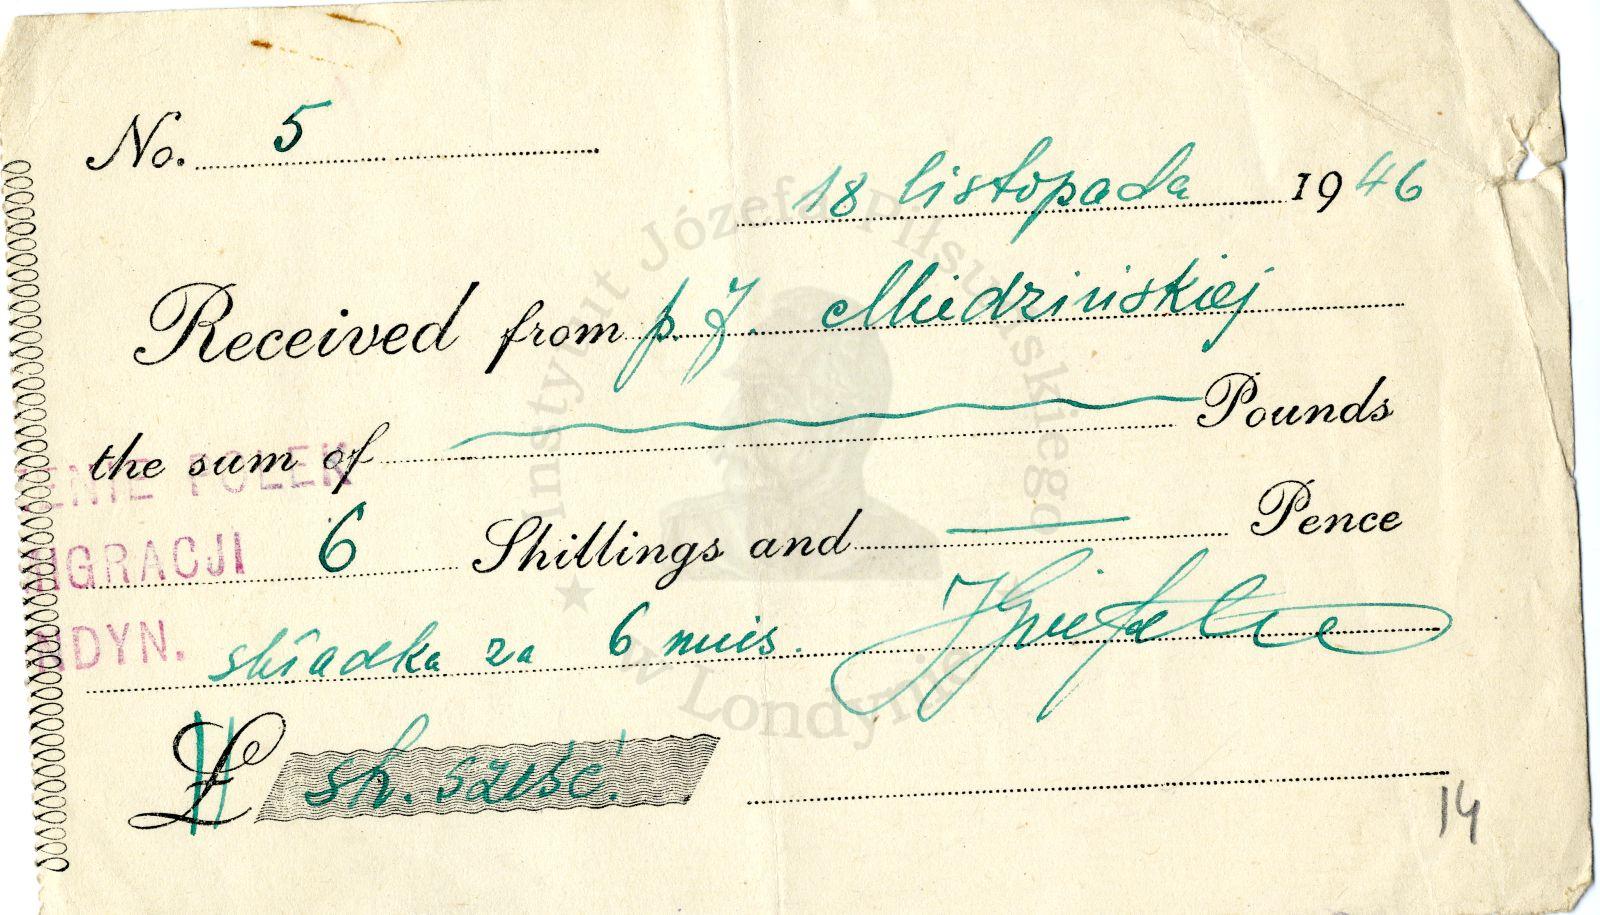 No. 5
18 listopada 1946
Received from p. J. Miedzińskiej
the sum of Pounds
6 Shillings and Pence
składka za 6 mies.
£ sh. sześć.
14
ENIE POLEK
IGRACJI
NDYN.
Instytut Józefa Piłsudskiego
w Londynie